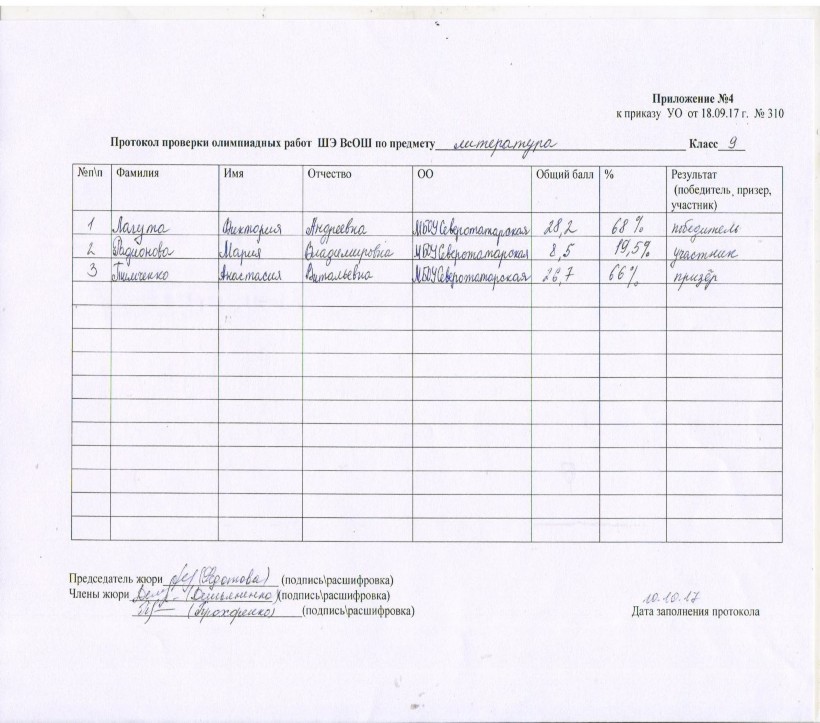 Приложение №4
к приказу УО от 18.09.17 г. № 310
Протокол проверки олимпиадных работ ШЭ ВсОШ по предмету литература Класс 9
№п\п Фамилия Имя Отчество ОО Общий балл % Результат (победитель, призер, участник)
1 Лагута Виктория Андреевна МБОУ Северотатарская 28,2 68% победитель
2 Радионова Мария Владимировна МБОУ Северотатарская 8,5 19,5% участник
3 Тимченко Анастасия Витальевна МБОУ Северотатарская 26,7 66% призёр
Председатель жюри (Федотова) (подпись\расшифровка)
Члены жюри (Демьяненко) (подпись\расшифровка)
(подпись\расшифровка)
10.10.17
Дата заполнения протокола